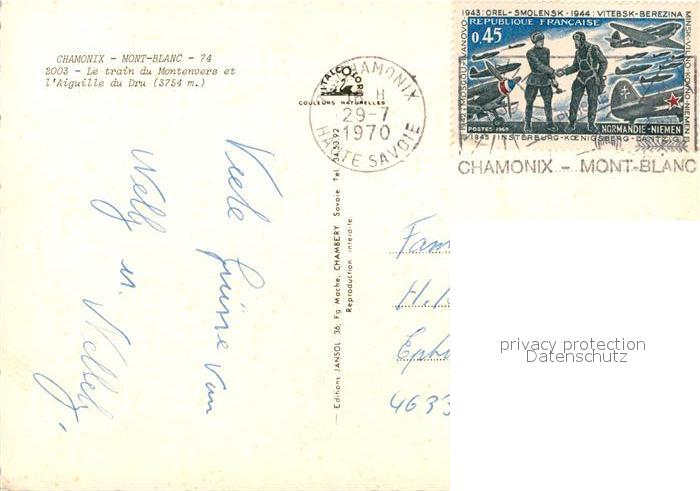 CHAMONIX - MONT-BLANC - 74
2003 - Le train du Montenvers et
l'Aiguille du Dru (3754 m.)
COULEURS NATURELLES
CHAMONIX
H
29-7
1970
HAUTE SAVOIE
1943: OREL - SMOLENSK - 1944: VITEBSK - BEREZINA
REPUBLIQUE FRANÇAISE
0,45
POSTES 1969
NORMANDIE-NIEMEN
CHAMONIX - MONT-BLANC
Viele Grüsse von
Editions JANSOL 36, Fg Mache, CHAMBERY Savoie Tel. 34.33.92
Reproduction interdite
Fam
H.
4633
privacy protection
Datenschutz